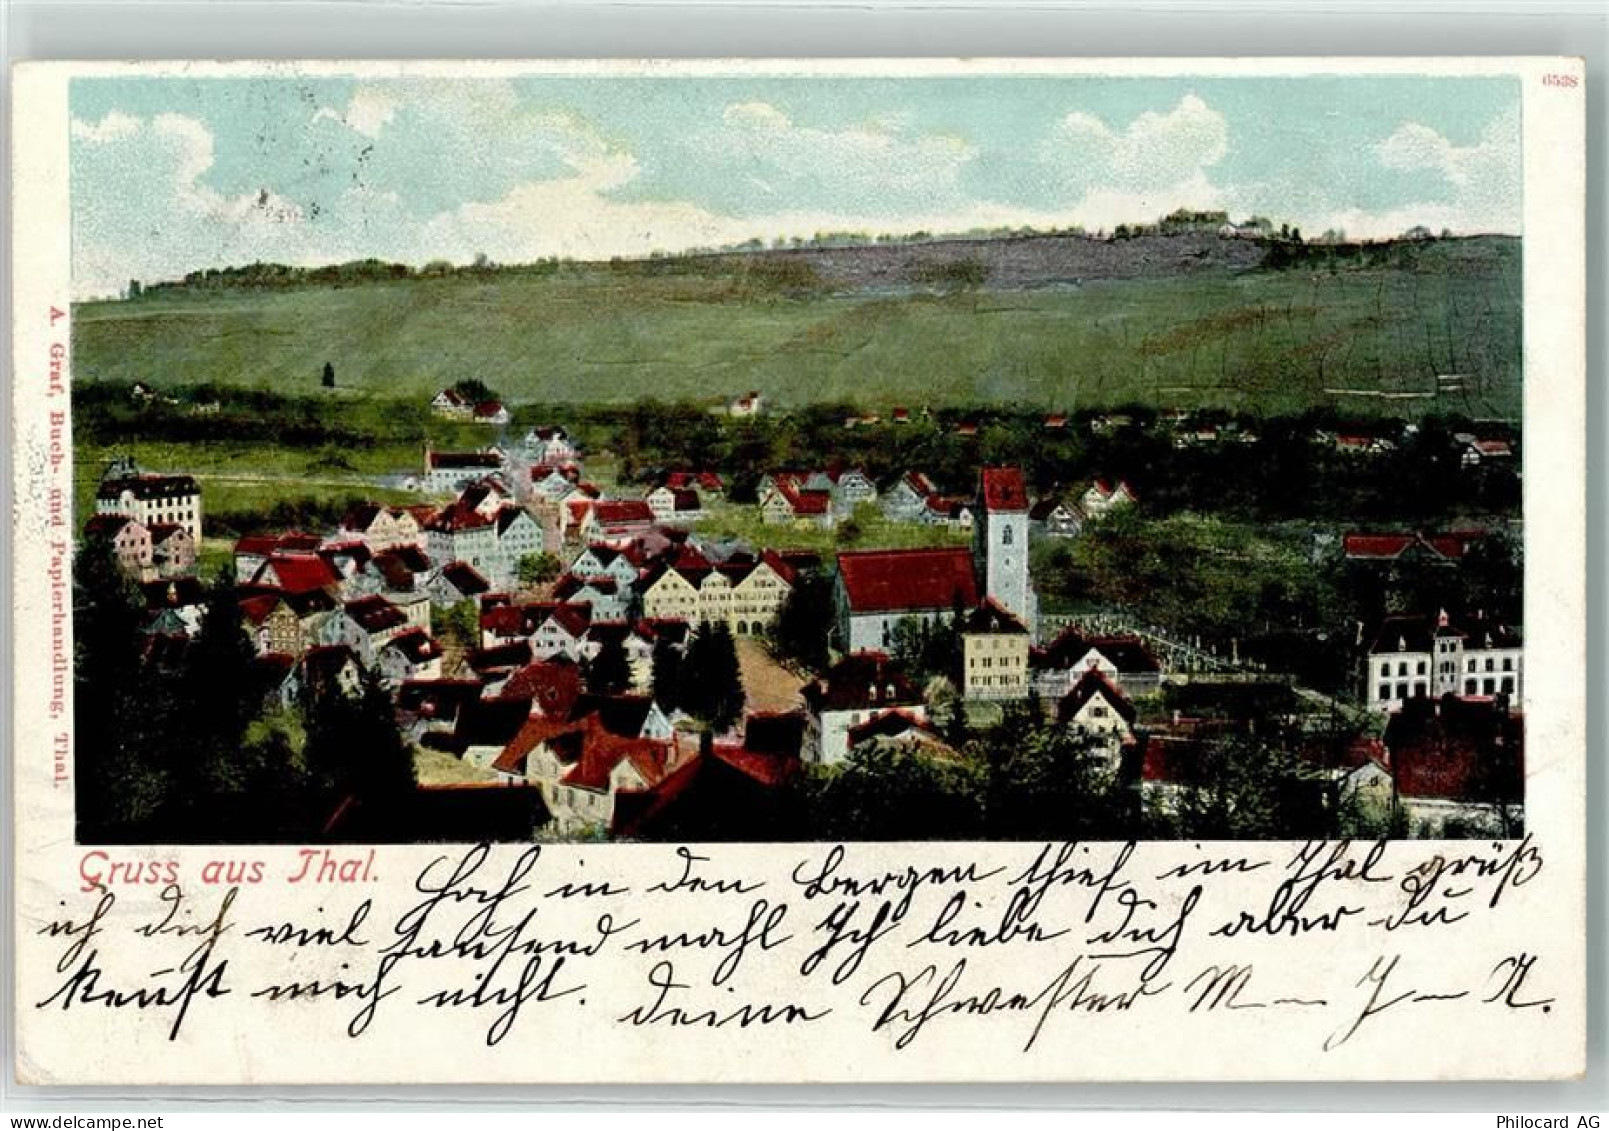 6538
A. Graf, Buch- und Papierhandlung, Thal.
Gruss aus Thal.
Hoch in den Bergen thief im Thal grüß
ich dich viel tausend mahl Ich liebe dich aber du
kenst mich nicht. deine Schwester M – J – N.
Philocard AG